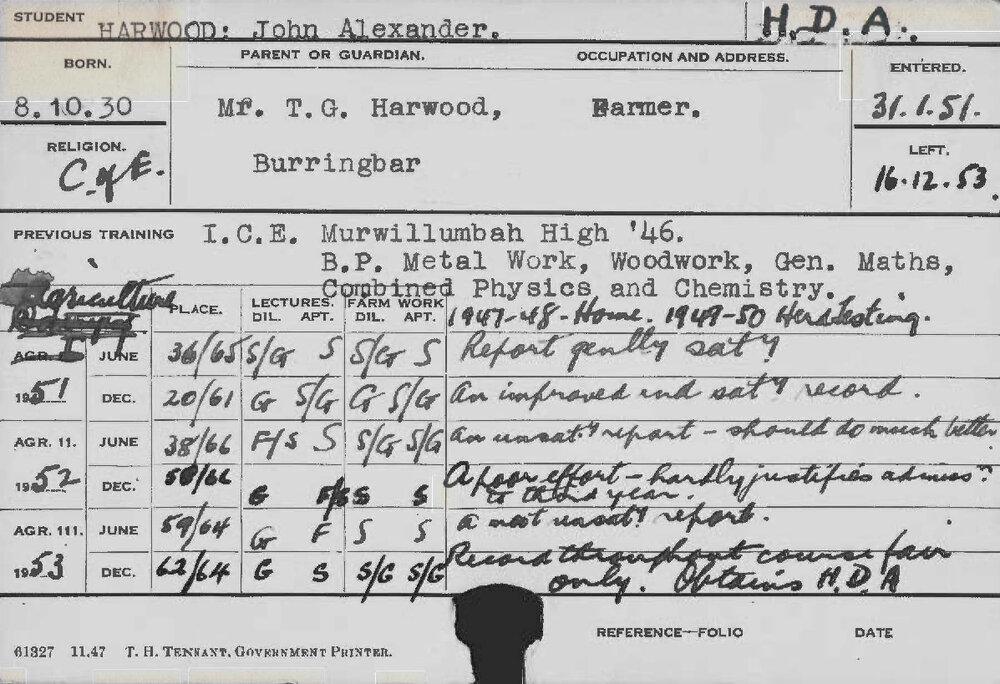 STUDENT HARWOOD: John Alexander. H.D.A.
BORN. PARENT OR GUARDIAN. OCCUPATION AND ADDRESS. ENTERED.
8.10.30 Mr. T.G. Harwood, Farmer. 31.1.51.
RELIGION. LEFT.
C. of E. Burringbar 16.12.53.
PREVIOUS TRAINING I.C.E. Murwillumbah High '46.
B.P. Metal Work, Woodwork, Gen. Maths,
Combined Physics and Chemistry.
Agriculture PLACE. LECTURES. FARM WORK
DIL. APT. DIL. APT. 1947-48-Home. 1949-50 Herdtesting.
AGR. I JUNE 36/65 S/G S S/G S Report genlly saty
1951 DEC. 20/61 G S/G G S/G An improved and saty record.
AGR. 11. JUNE 38/66 F/S S S/G S/G An unsat.y report - should do much better
1952 DEC. 58/66 G F/S S S A poor effort - hardly justifies admiss.n
to third year.
AGR. 111. JUNE 59/64 G F S S A most unsaty report.
1953 DEC. 62/64 G S S/G S/G Record throughout course fair
only. Obtains H.D.A
REFERENCE-FOLIO DATE
61327 11.47 T. H. TENNANT, GOVERNMENT PRINTER.